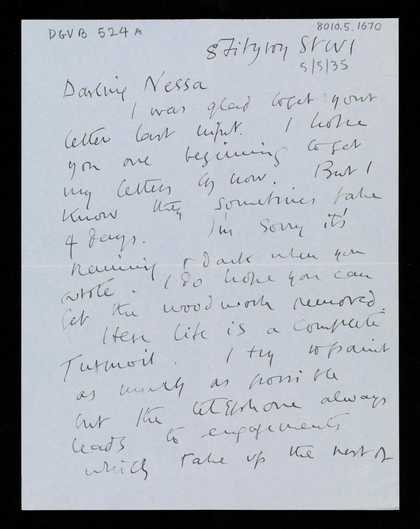 DGVB 524A
8010.5.1670
8 Fitzroy St W1
5/5/35
Darling Nessa
I was glad to get your
letter last night. I hope
you are beginning to get
my letters by now. But I
know they sometimes take
4 days. I'm sorry it's
raining & dark when you
wrote. I do hope you can
get the woodwork removed
Here life is a complete
Turmoil. I try to paint
as much as possible
but the telephone always
leads to engagements
which take up the rest of